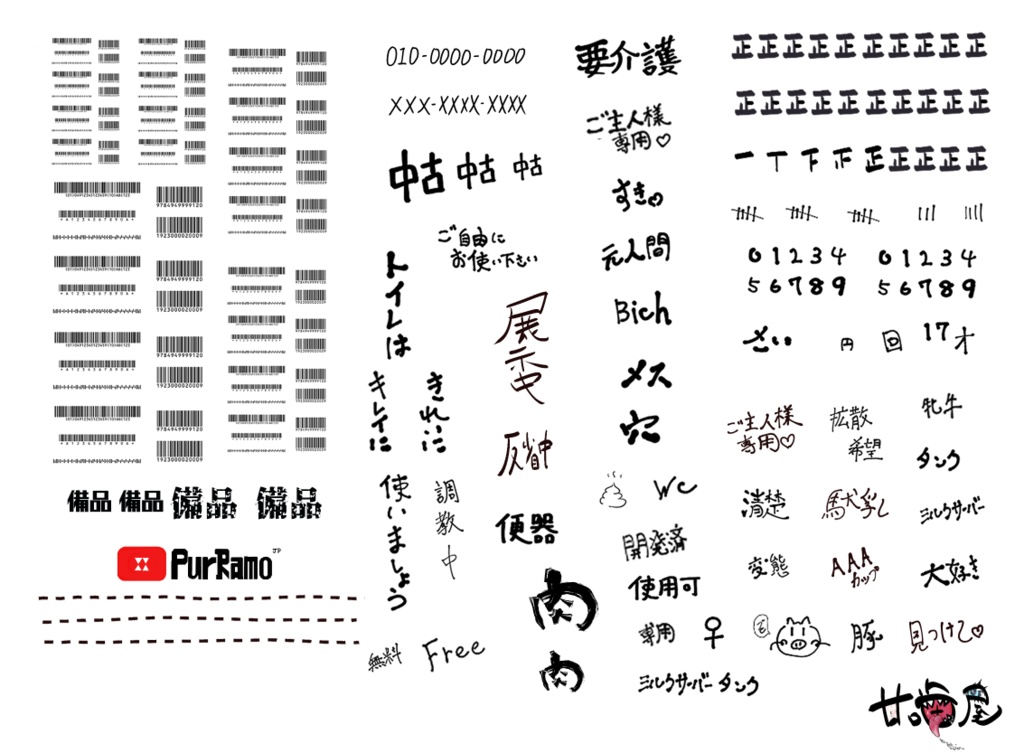 9784949999120
1923000020009
9784949999120
1923000020009
9784949999120
1923000020009
9784949999120
1923000020009
備品 備品 備品 備品
PurRamo JP
010-0000-0000
XXX-XXXX-XXXX
中古 中古 中古
ご自由に
お使い下さい
トイレは
キレイに
きれいに
使いましょう
調教中
展示中
反省中
便器
肉
肉
無料
Free
要介護
ご主人様
専用♡
すき♡
元人間
Bich
メス
穴
WC
開発済
使用可
専用 ♀
ミルクサーバー タンク
正正正正正正正正正正
正正正正正正正正正正
一丅下正正正正正正
0 1 2 3 4 0 1 2 3 4
5 6 7 8 9 5 6 7 8 9
さい 円 回 17才
ご主人様
専用♡
拡散
希望
牝牛
タンク
清楚
馱乳
ミルクサーバー
変態
AAA
カップ
大好き
豚
見つけて♡